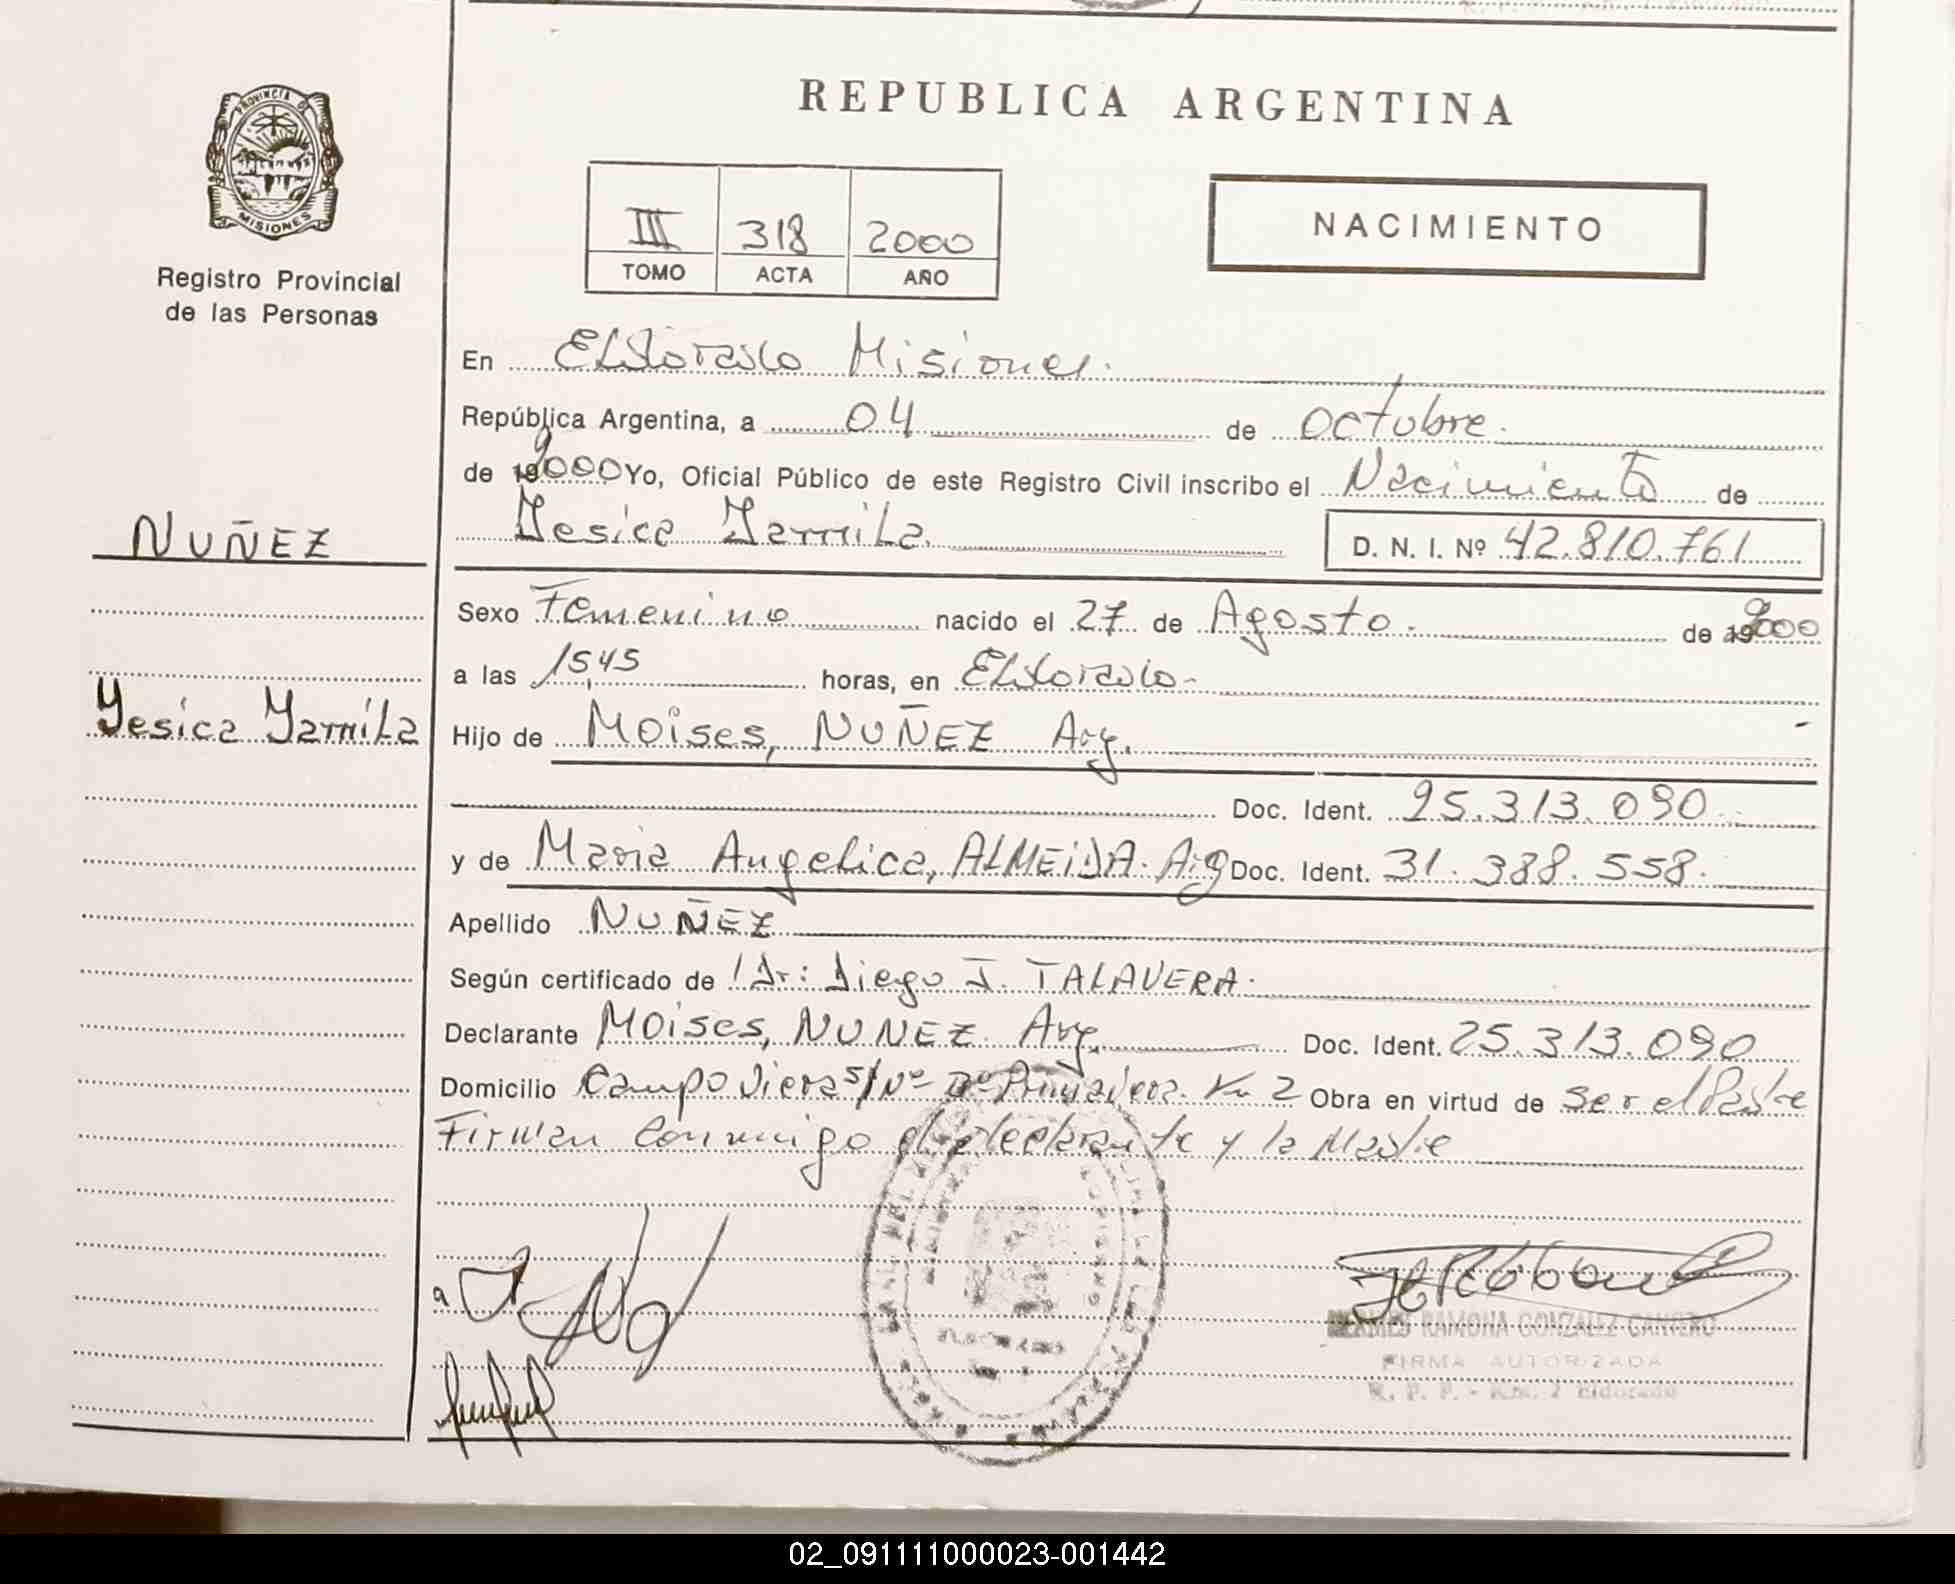 REPUBLICA ARGENTINA
PROVINCIA DE MISIONES
Registro Provincial
de las Personas
III 318 2000
TOMO ACTA AÑO
NACIMIENTO
En Eldorado Misiones.
República Argentina, a 04 de octubre.
de 2000 Yo, Oficial Público de este Registro Civil inscribo el Nacimiento de
Yesica Yamila D. N. I. Nº 42.810.761
NUÑEZ
Yesica Yamila
Sexo Femenino nacido el 27 de Agosto. de 2000
a las 15,45 horas, en Eldorado-
Hijo de Moises, NUÑEZ Arg.
Doc. Ident. 25.313.090
y de Maria Angelica, ALMEIDA. Arg Doc. Ident. 31.388.558.
Apellido NUÑEZ
Según certificado de Dr: Diego J. TALAVERA.
Declarante Moises, NUNEZ Arg. Doc. Ident. 25.313.090
Domicilio Campo Viera s/Nº Bº Primavera. Km 2 Obra en virtud de ser el Padre
Firman conmigo el declarante y la Madre
RAMONA GONZALEZ CANTERO
FIRMA AUTORIZADA
R. P. P. - Km. 2 Eldorado
02_091111000023-001442